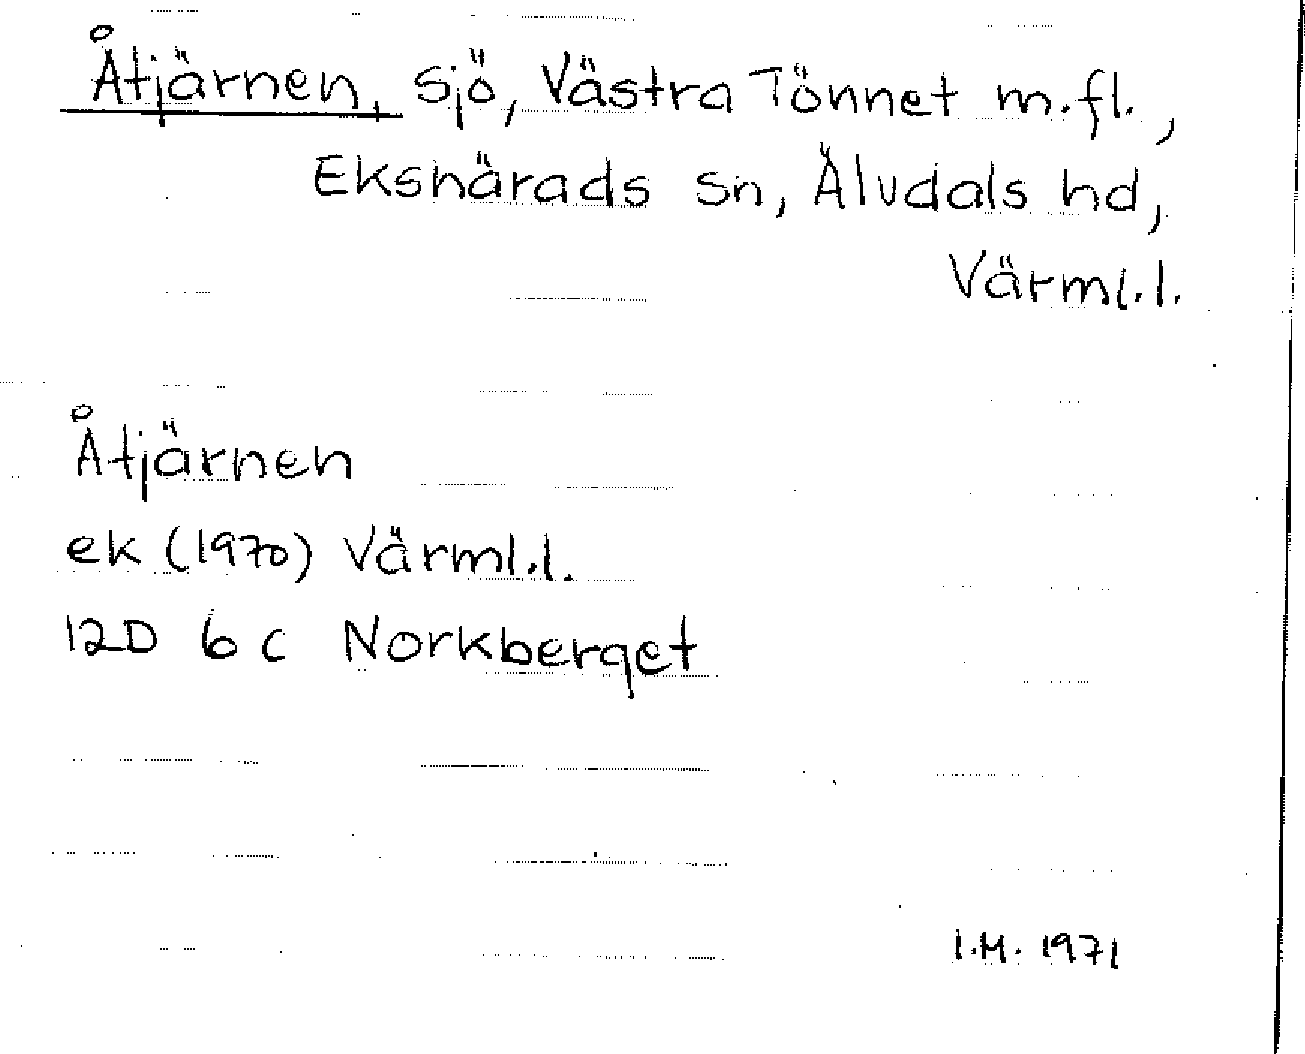 Åtjärnen, sjö, Västra Tönnet m.fl.,
Ekshärads sn, Älvdals hd,
Värml.l.
Åtjärnen
ek (1970) Värml.l.
12D 6c Norkberget
I.M. 1971